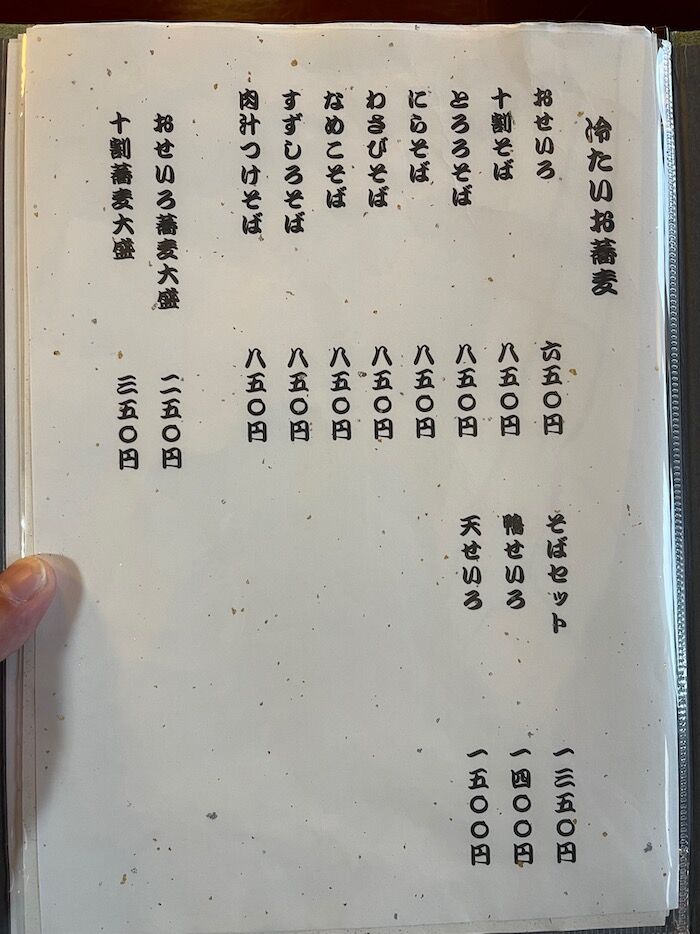 冷たいお蕎麦
おせいろ 六五〇円
十割そば 八五〇円
とろろそば 八五〇円
にらそば 八五〇円
わさびそば 八五〇円
なめこそば 八五〇円
すずしろそば 八五〇円
肉汁つけそば 八五〇円
おせいろ蕎麦大盛 二五〇円
十割蕎麦大盛 三五〇円
そばセット 一三五〇円
鴨せいろ 一四〇〇円
天せいろ 一五〇〇円